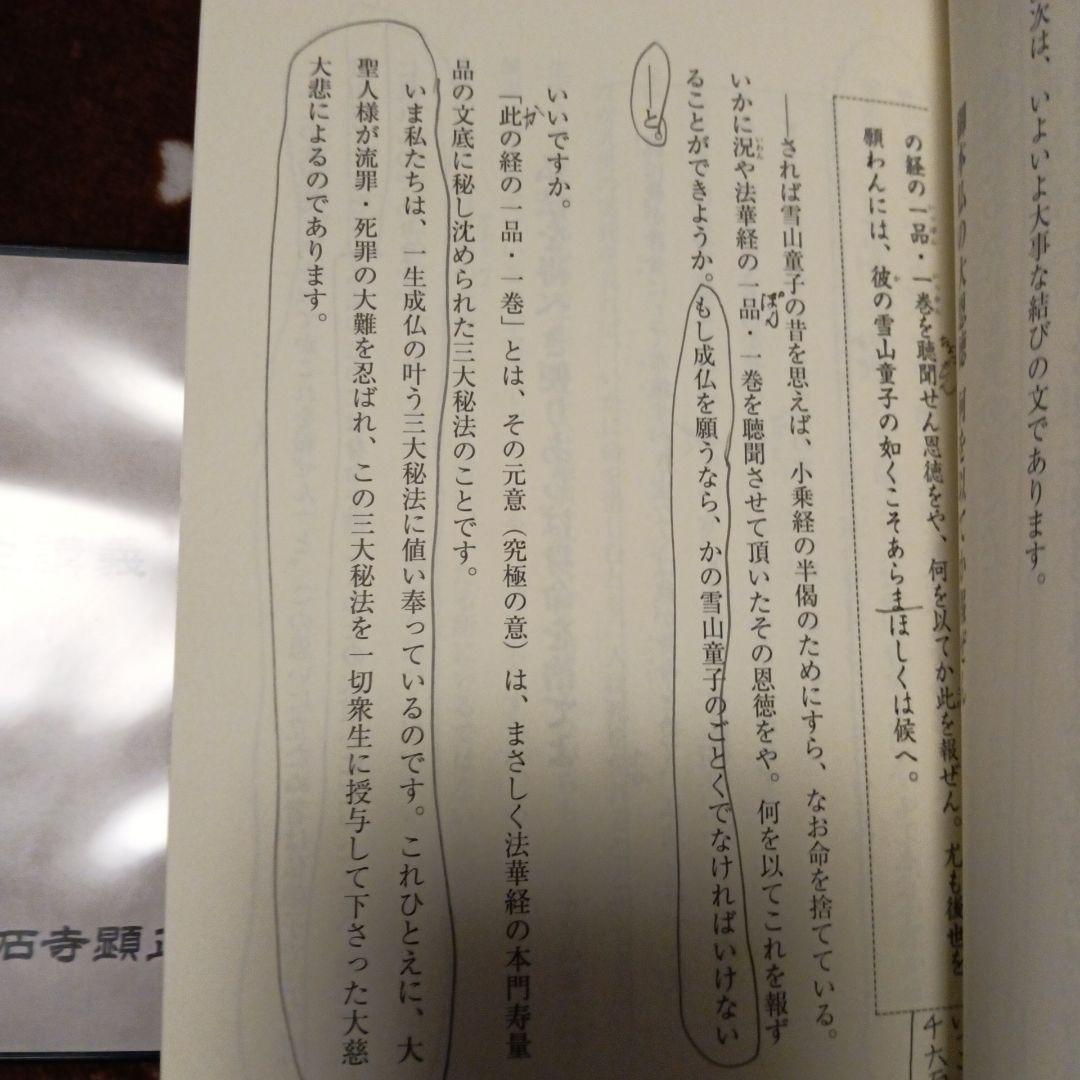 次は、いよいよ大事な結びの文であります。
の経の一品・一巻を聴聞せん恩徳をや、何を以てか此を報ぜん。尤も後世を
願わんには、彼の雪山童子の如くこそあらまほしくは候へ。
――されば雪山童子の昔を思えば、小乗経の半偈のためにすら、なお命を捨てている。
いかに況や法華経の一品・一巻を聴聞させて頂いたその恩徳をや。何を以てこれを報ず
ることができようか。もし成仏を願うなら、かの雪山童子のごとくでなければいけない
――と。
いいですか。
「此の経の一品・一巻」とは、その元意（究極の意）は、まさしく法華経の本門寿量
品の文底に秘し沈められた三大秘法のことです。
いま私たちは、一生成仏の叶う三大秘法に値い奉っているのです。これひとえに、大
聖人様が流罪・死罪の大難を忍ばれ、この三大秘法を一切衆生に授与して下さった大慈
大悲によるのであります。
石寺顕正